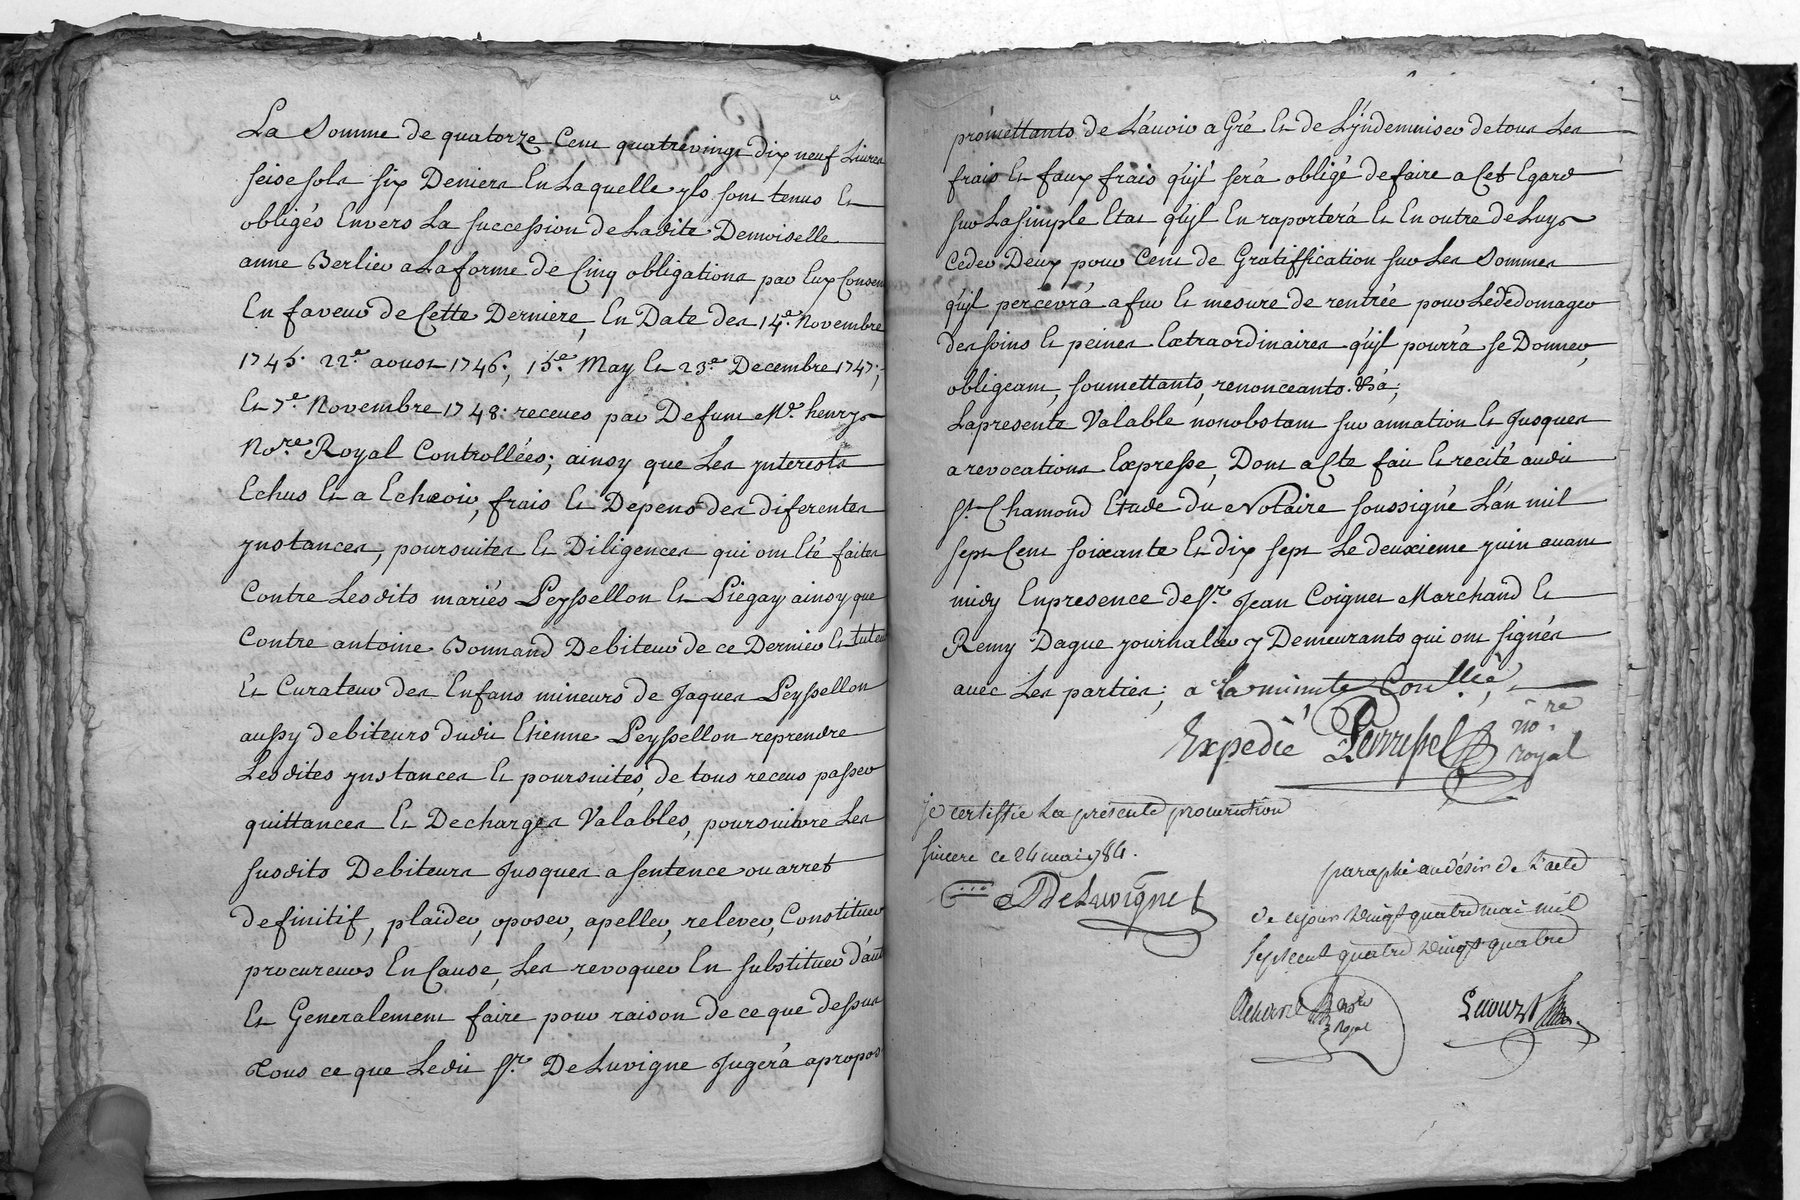 La Somme de quatorze Cent quatrevingt dix neuf Livres
seise sols six Deniers En Laquelle yls sont tenus Et
obligés Envers La succession de Ladite Demoiselle
anne Berlier a La forme de Cinq obligations par Eux Consen
En faveur de Cette Derniere, En Date des 14e. Novembre
1745. 22e. aoust 1746; 15e. May Et 23e. Decembre 1747;
Et 7e. Novembre 1748. receues par Defunt Me. henrys
Nore. Royal Controllées; ainsy que Les ynterests
Echus Et a Echeoir, frais Et Depens des diferentes
ynstances, poursuites Et Diligences qui ont Eté faites
Contre Lesdits mariés Peyssellon Et Piegay ainsy que
Contre antoine Bonnand Debiteur de ce Dernier Et tuteur
Et Curateur des Enfans mineurs de Jaques Peyssellon
aussy debiteurs dudit Etienne Peyssellon reprendre
Lesdites ynstances Et poursuites, de tous receus passer
quittances Et Decharges Valables, poursuivre Les
susdits Debiteurs Jusques a sentence ou arret
definitif, plaider, oposer, apeller, relever, Constituer
procureurs En Cause, Les revoquer En substituer d'aut
Et Generalement faire pour raison de ce que dessus
Tous ce que Ledit Sr. DeLuvigne Jugera apropos
promettants de L'avoir a Gré Et de L'yndemniser de tous Les
frais Et faux frais qu'jl sera obligé de faire a Cet Egard
sur La simple Etat qu'jl En raportera Et En outre de Luy
Ceder Deux pour Cent de Gratiffication sur Les Sommes
qu'jl percevra a fur Et mesure de rentrée pour Le dedomager
des soins Et peines Extraordinaires qu'jl pourra se Donner,
obligeant, soumettants, renonceants. &a;
La presente Valable nonobstant surannation Et Jusques
a revocations Expresse, Dont acte fait Et recité audit
St. Chamond Etude du Notaire soussigné L'an mil
sept Cent soixante Et dix sept Le deuxieme juin avant
midy En presence de Sr. Jean Coignet Marchand Et
Remy Dague journalier y Demeurants qui ont signés
avec Les parties; a La minutte Conllée,
Expedié Perrussel nore. royal
je certiffie La presente procuration
sincere ce 24 mai 1784.
DeLuvigne
paraphé au désir de L'acte
de cejour vingt quatre mai mil
sept cent quatre vingt quatre
nore. Royal